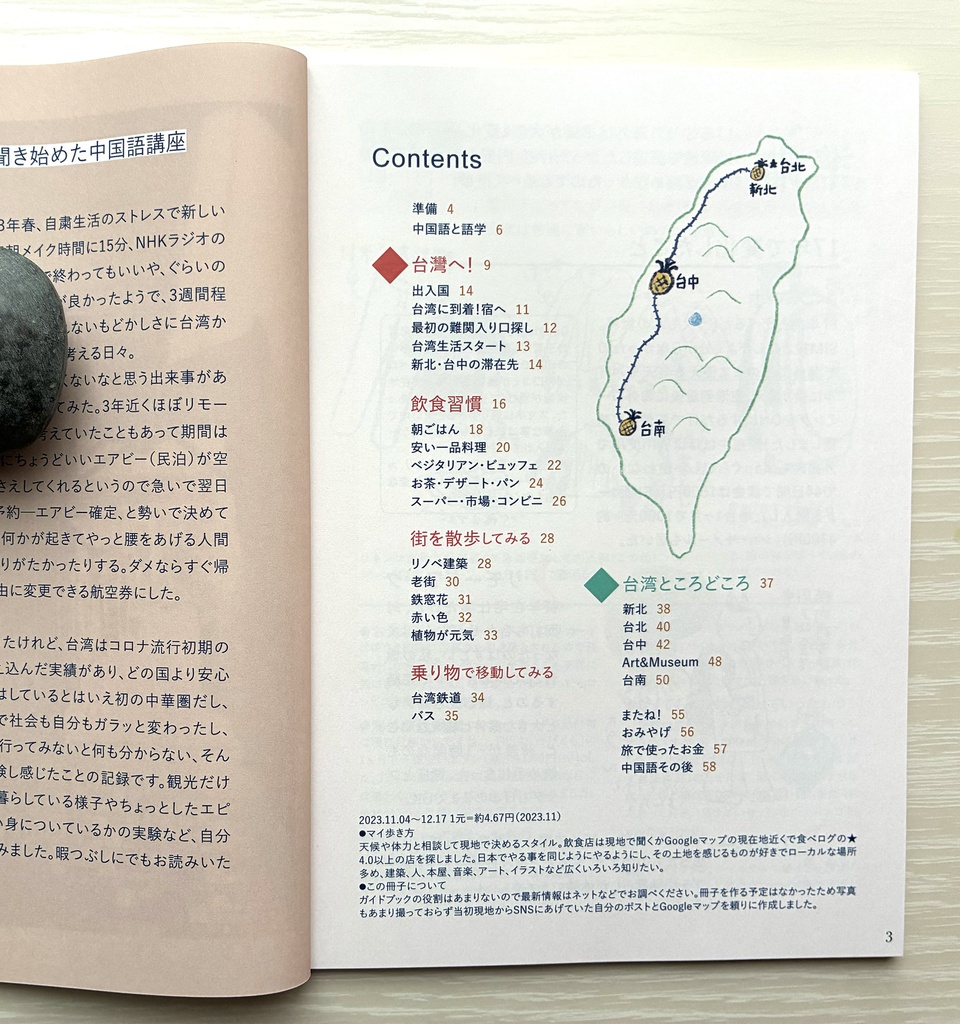 聞き始めた中国語講座
3年春、自粛生活のストレスで新しい
朝メイク時間に15分、NHKラジオの
で終わってもいいや、ぐらいの
が良かったようで、3週間程
しないもどかしさに台湾か
考える日々。
くないなと思う出来事があ
てみた。3年近くほぼリモー
考えていたこともあって期間は
にちょうどいいエアビー(民泊)が空
さえしてくれるというので急いで翌日
予約―エアビー確定、と勢いで決めて
何かが起きてやっと腰をあげる人間
りがたかったりする。ダメならすぐ帰
由に変更できる航空券にした。
たけれど、台湾はコロナ流行初期の
え込んだ実績があり、どの国より安心
はしているとはいえ初の中華圏だし、
で社会も自分もガラッと変わったし、
行ってみないと何も分からない、そん
験し感じたことの記録です。観光だけ
暮らしている様子やちょっとしたエピ
い身についているかの実験など、自分
みました。暇つぶしにでもお読みいた
Contents
準備 4
中国語と語学 6
台灣へ! 9
出入国 14
台湾に到着!宿へ 11
最初の難関入り口探し 12
台湾生活スタート 13
新北・台中の滞在先 14
飲食習慣 16
朝ごはん 18
安い一品料理 20
ベジタリアン・ビュッフェ 22
お茶・デザート・パン 24
スーパー・市場・コンビニ 26
街を散歩してみる 28
リノベ建築 28
老街 30
鉄窓花 31
赤い色 32
植物が元気 33
乗り物で移動してみる
台湾鉄道 34
バス 35
台北
新北
台中
台南
台湾ところどころ 37
新北 38
台北 40
台中 42
Art&Museum 48
台南 50
またね! 55
おみやげ 56
旅で使ったお金 57
中国語その後 58
2023.11.04〜12.17 1元=約4.67円(2023.11)
●マイ歩き方
天候や体力と相談して現地で決めるスタイル。飲食店は現地で聞くかGoogleマップの現在地近くで食べログの★
4.0以上の店を探しました。日本でやる事を同じようにやるようにし、その土地を感じるものが好きでローカルな場所
多め、建築、人、本屋、音楽、アート、イラストなど広くいろいろ知りたい。
●この冊子について
ガイドブックの役割はあまりないので最新情報はネットなどでお調べください。冊子を作る予定はなかったため写真
もあまり撮っておらず当初現地からSNSにあげていた自分のポストとGoogleマップを頼りに作成しました。
3